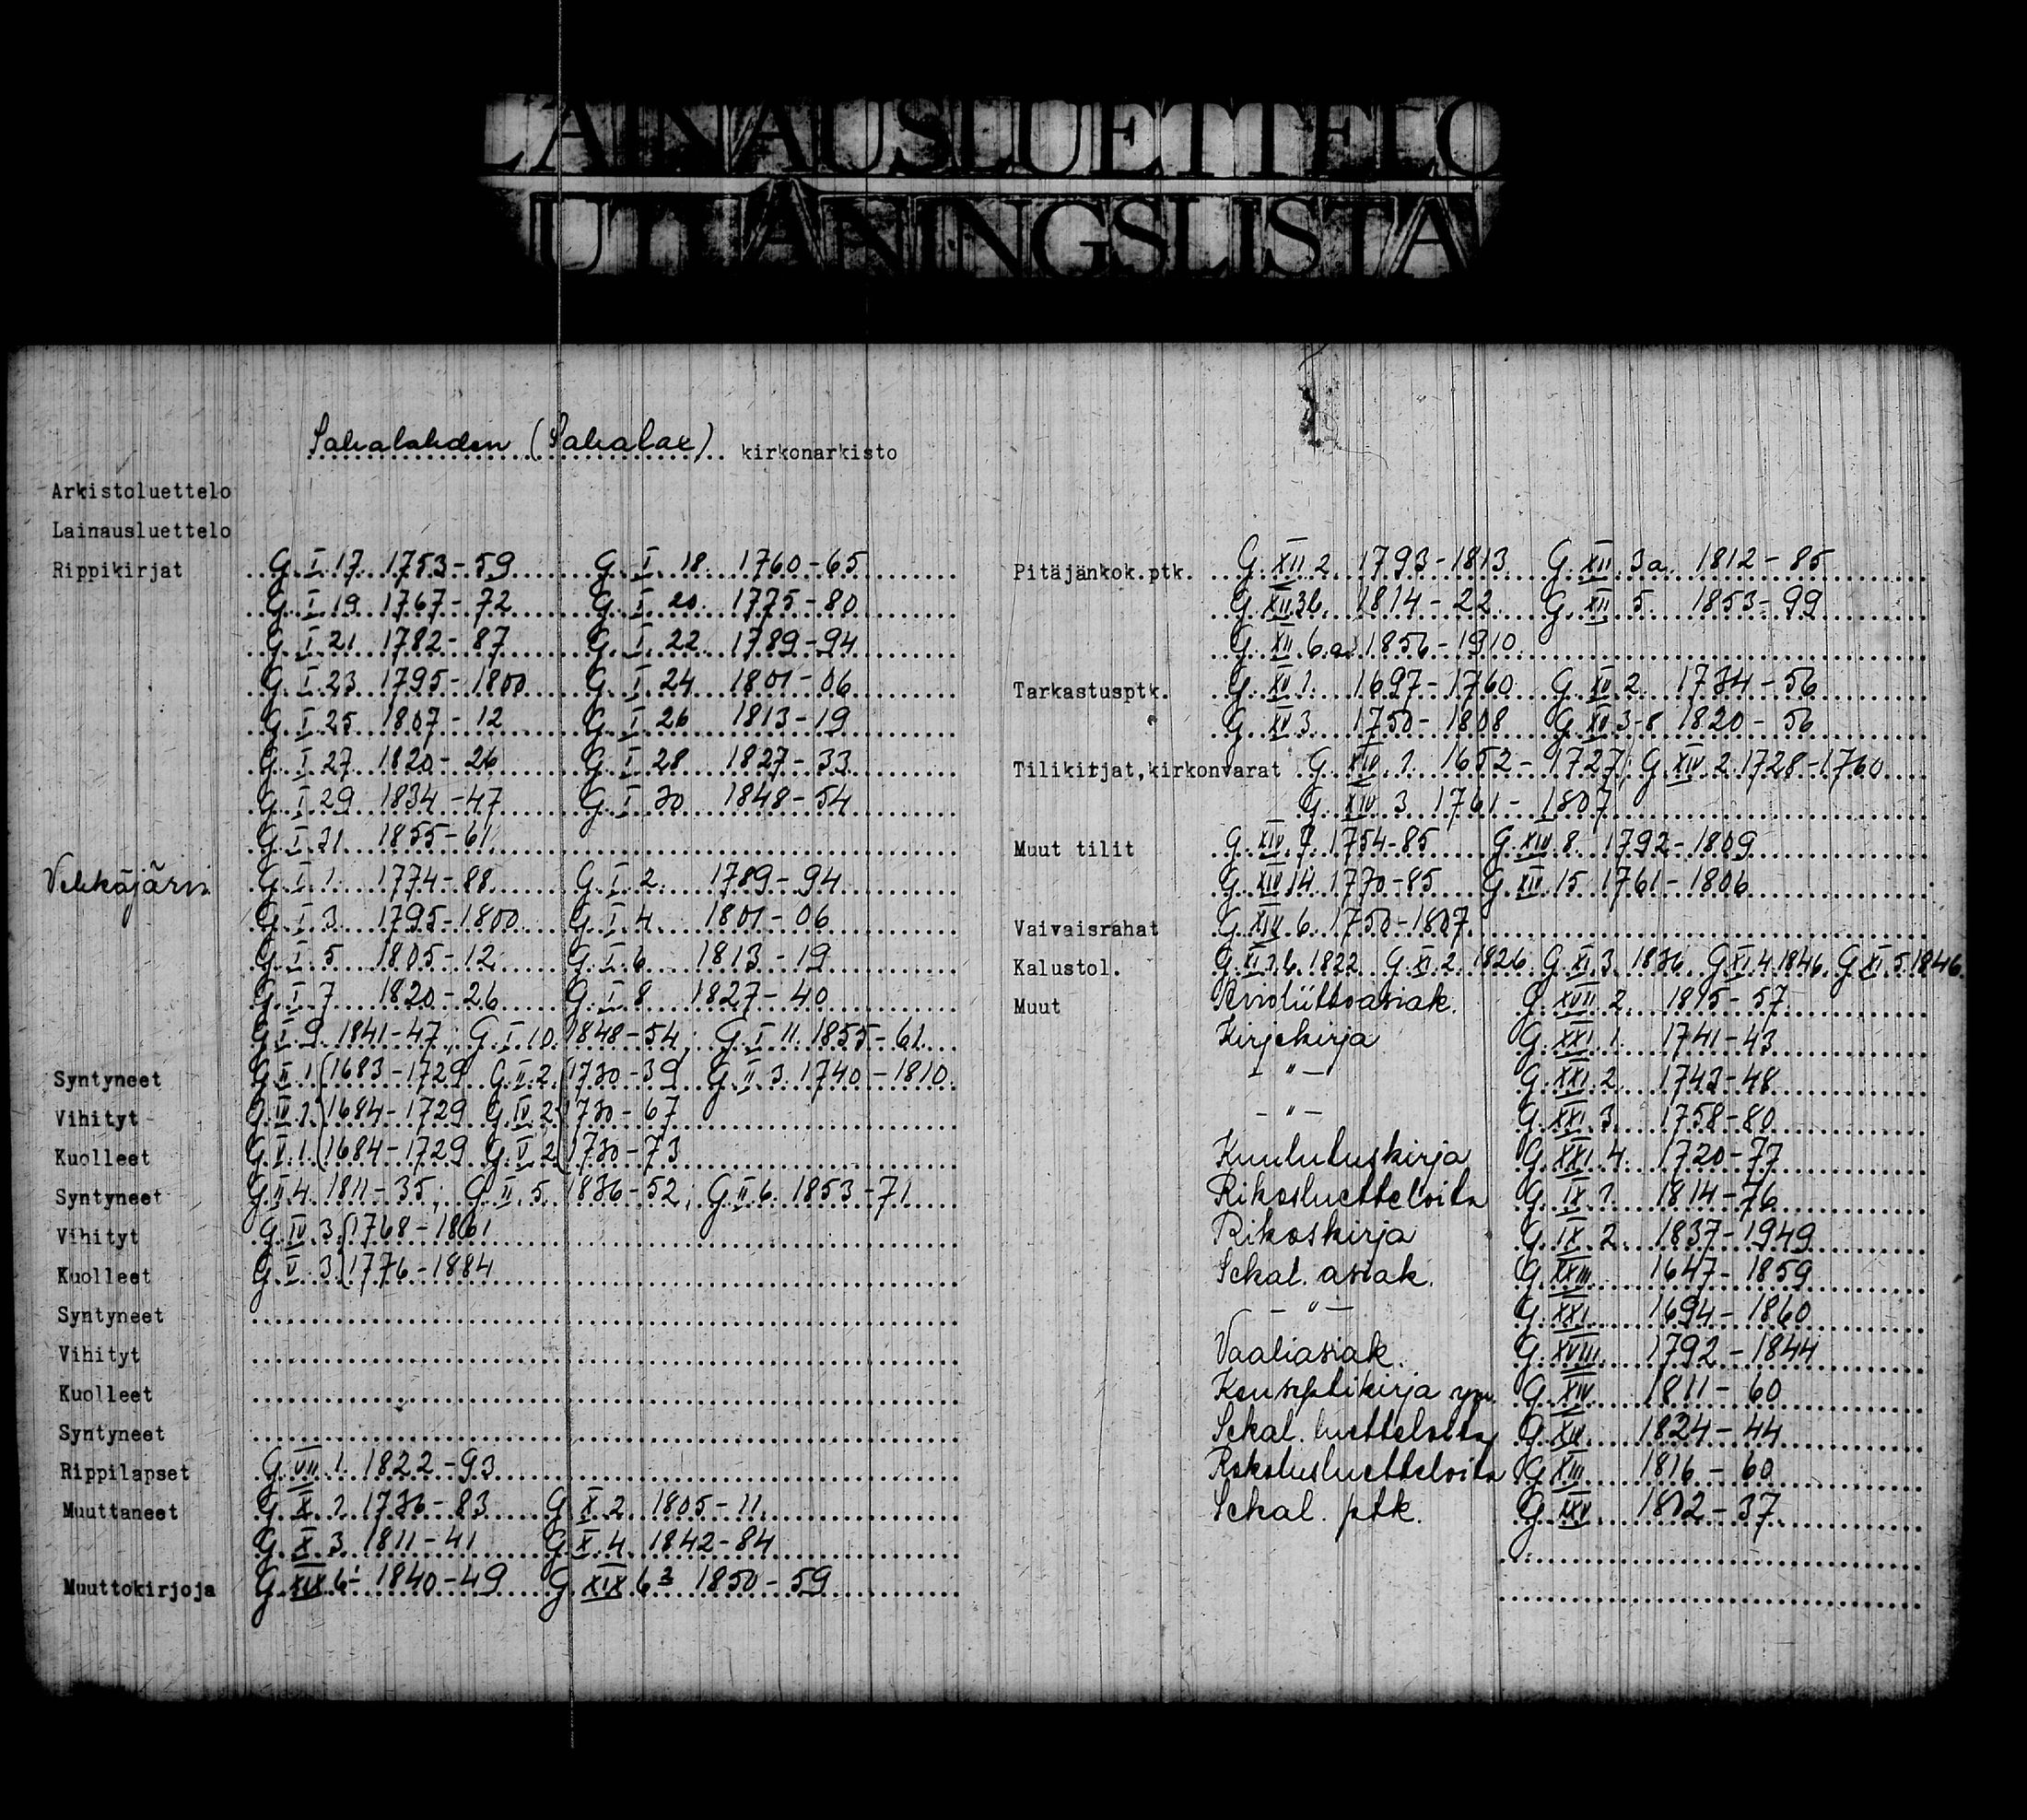 LAINAUSLUETTELO
UTLÅNINGSLISTA
Sahalahden (Sahalax) kirkonarkisto
Arkistoluettelo
Lainausluettelo
Rippikirjat G. I. 17. 1753-59 G. I. 18 1760-65
G. I. 19 1767-72 G. I. 20. 1775-80
G. I. 21 1782-87 G. I. 22 1789-94
G. I. 23 1795-1800 G. I. 24 1801-06
G. I. 25 1807-12 G. I. 26 1813-19
G. I. 27 1820-26 G. I. 28 1827-33
G. I. 29 1834-47 G. I. 30 1848-54
G. I. 31 1855-61
G. I. 1. 1774-88 G. I. 2. 1789-94
G. I. 3. 1795-1800 G. I. 4 1801-06
G. I. 5 1805-12 G. I. 6 1813-19
G. I. 7 1820-26 G. I. 8 1827-40
G. I. 9 1841-47; G. I. 10. 1848-54; G. I. 11. 1855-61
Syntyneet G. II. 1 (1683-1729 G. II. 2. (1730-39 G. II. 3. 1740-1810.
Vihityt G. IV. 1. 1684-1729 G. IV. 2 1730-67
Kuolleet G. V. 1. (1684-1729 G. V. 2 1730-73
Syntyneet G. II. 4. 1811-35; G. II. 5. 1836-52; G. II. 6. 1853-71
Vihityt G. IV. 3. 1768-1861
Kuolleet G. V. 3. 1776-1884
Syntyneet
Vihityt
Kuolleet
Syntyneet
Rippilapset G. VII. 1. 1822-93
Muuttaneet G. X. 1. 1736-83 G. X. 2. 1805-11.
G. X. 3. 1811-41 G. X. 4. 1842-84
Muuttokirjoja G. XIX 6 1840-49 G. XIX 6 1850-59
Pitäjänkok.ptk. G. XII 2 1793-1813 G. XII. 3a. 1812-85
G. XII. 3b. 1814-22 G. XII. 5. 1853-99
G. XII. 6.a) 1856-1910
Tarkastusptk. G. XV. 1. 1697-1760 G. XV. 2. 1734-56
G. XV. 3. 1750-1808 G. XV 3-8 1820-56
Tilikirjat, kirkonvarat G. XIV. 1. 1652-1727; G. XIV. 2. 1728-1760
G. XIV. 3 1761-1807
Muut tilit G. XIV. 7. 1754-85 G. XIV. 8. 1792-1809
G. XIV. 14 1770-85 G. XIV. 15 1761-1806
Vaivaisrahat G. XIV. 6. 1750-1807.
Kalustol. G. XI. 1.b. 1822 G. XI. 2. 1826 G. XI. 3. 1836 G. XI. 4. 1846. G. XI. 5. 1846.
Muut Avioliittoasiak. G. XVII. 2. 1815-57
Kirjekirja G. XXI. 1. 1741-43
- " - G. XXI. 2. 1743-48
- " - G. XXI. 3. 1758-80
Kuulutuskirja G. XXI. 4. 1720-77
Rikosluetteloita G. IX. 1. 1814-76
Rikoskirja G. IX. 2. 1837-1949
Sekal. asiak. G. XXIII 1647-1859
- " - G. XXI. 1694-1860
Vaaliasiak. G. XVIII. 1792-1844
Konseptikirja ym G. XIV 1811-60
Sekal. luetteloita G. XV 1824-44
Rokotusluetteloita G. XIII 1816-60
Sekal. ptk. G. XXV 1812-37